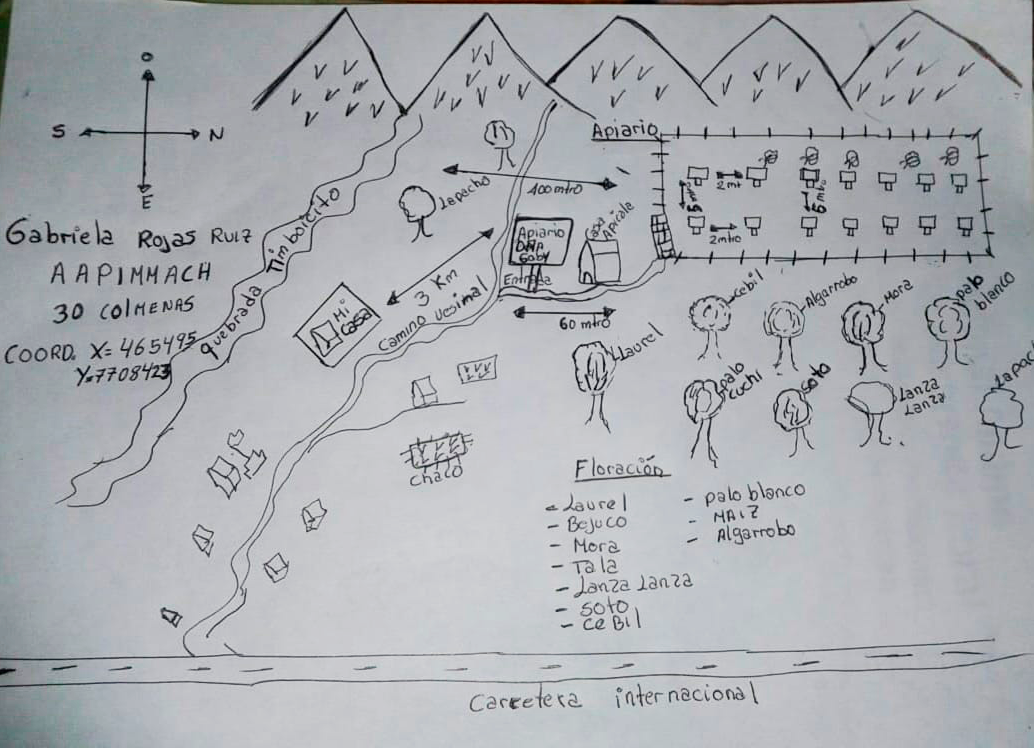 O
S
N
E
Gabriela Rojas Ruiz
AAPIMMACH
30 COlMENAS
COORD. X=465495
Y=7708423
Quebrada Timboicito
Lapacho
400 mtro
Apiario
2 mt
5 mtro
2 mtro
Apiario
DMA
Gaby
Casa
Apicola
Entrada
60 mtro
3 Km
Mi
Casa
Camino Vesimal
Chaco
Cebil
Algarrobo
Mora
palo
blanco
Laurel
palo
cuchi
Soto
Lanza
Lanza
Lapach
Floración
- Laurel
- Bejuco
- Mora
- Tala
- Lanza Lanza
- Soto
- CeBil
- palo blanco
- MAIZ
- Algarrobo
Carretera internacional